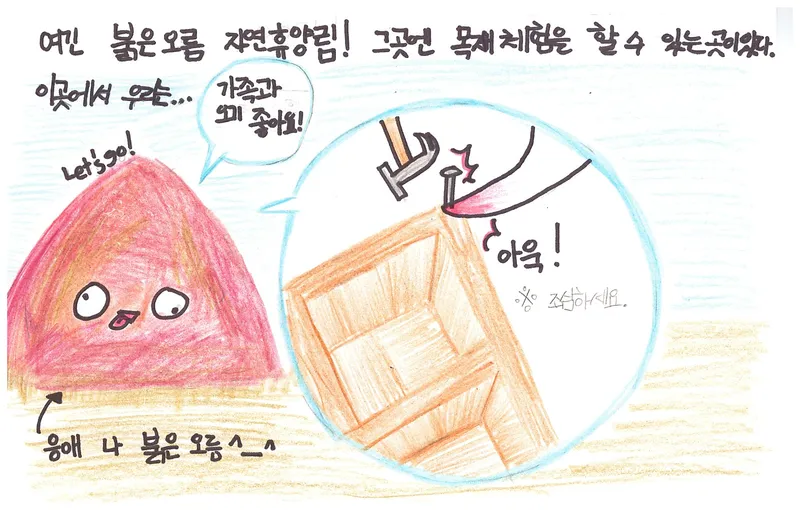 여긴 붉은오름 자연휴양림! 그곳엔 목재체험을 할 수 있는 곳이있다.
이곳에서 우리는...
가족과
오기 좋아요!
Let's go!
아욱!
※ 조심하세요.
응애 나 붉은오름^_^